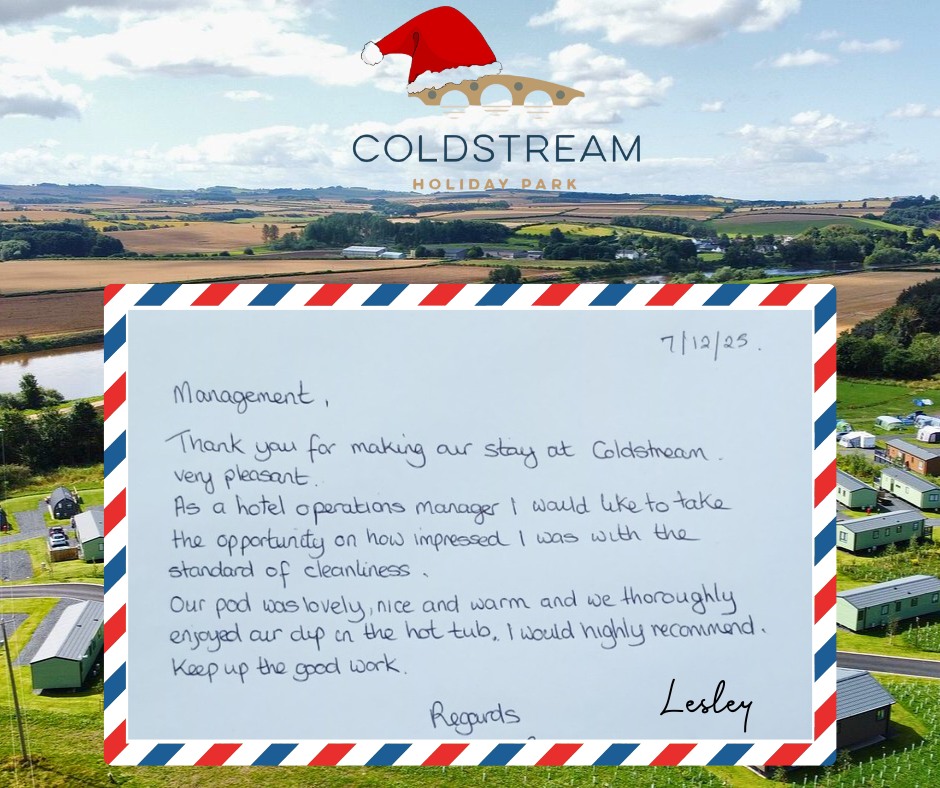 COLDSTREAM
HOLIDAY PARK
7/12/25.
Management,
Thank you for making our stay at Coldstream.
very pleasant.
As a hotel operations manager I would like to take
the opportunity on how impressed I was with the
standard of cleanliness.
Our pod was lovely, nice and warm and we thoroughly
enjoyed our dip in the hot tub. I would highly recommend.
Keep up the good work.
Regards
Lesley